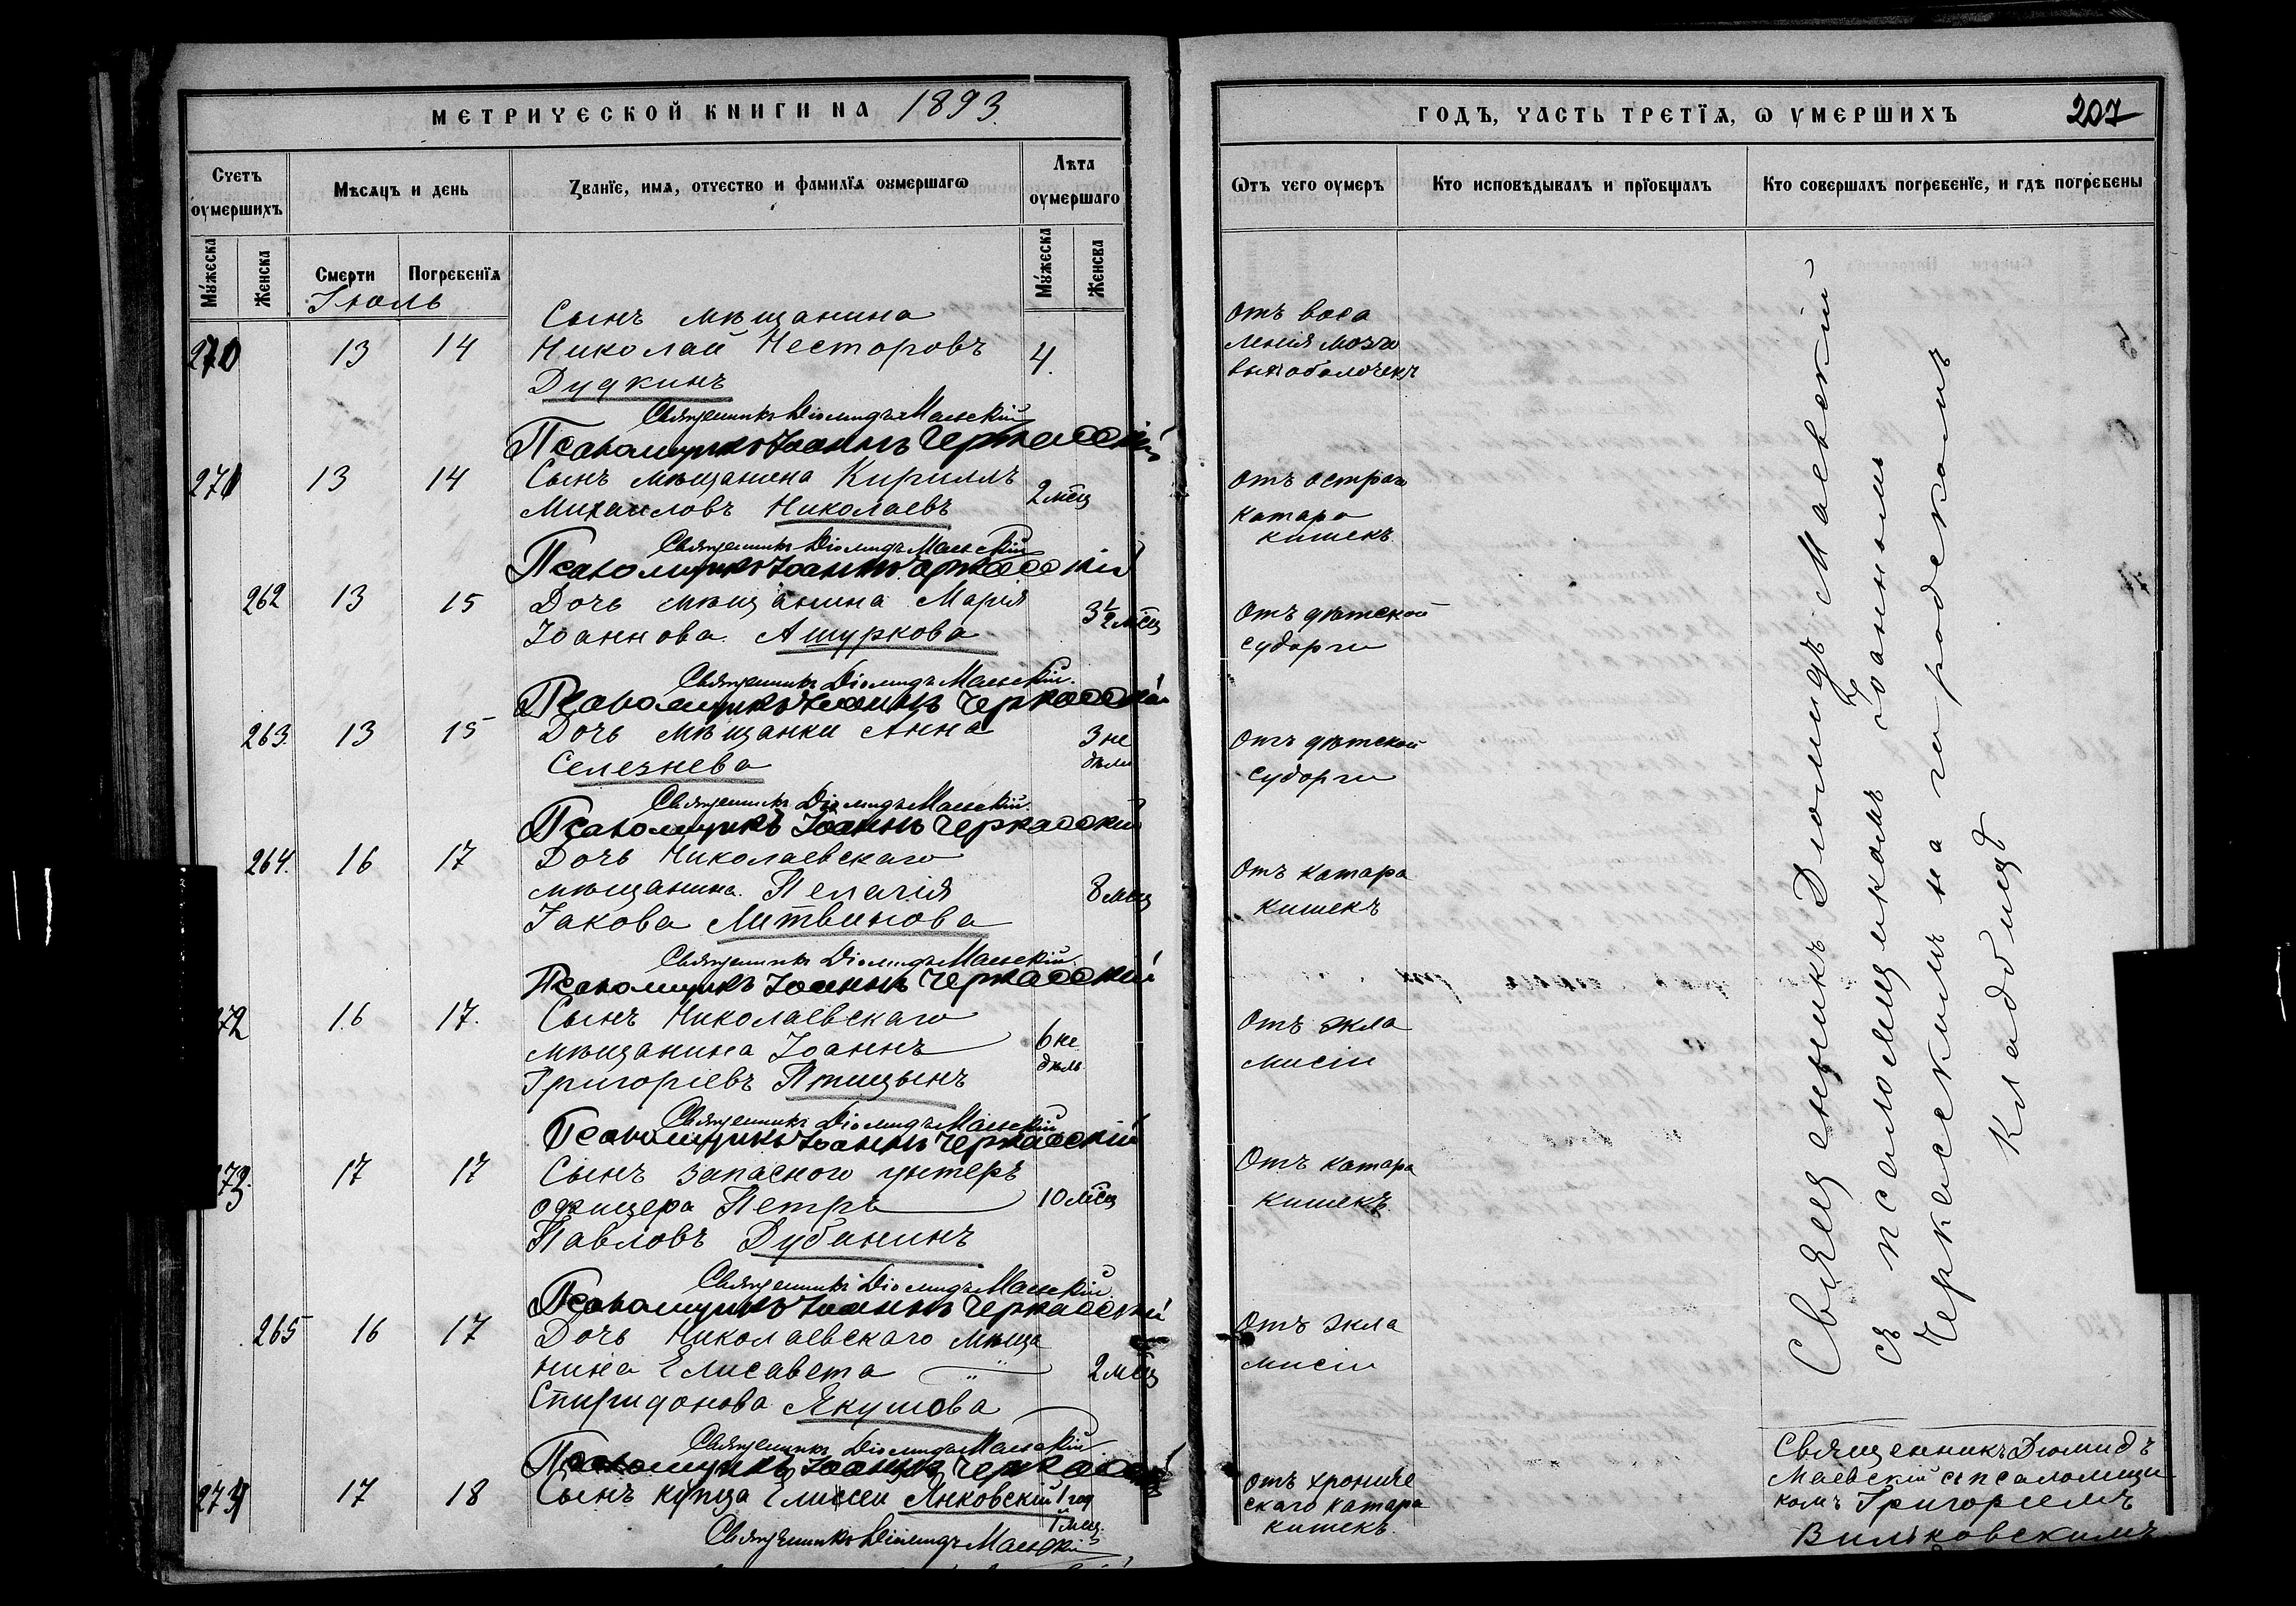 МЕТРИЧЕСКОЙ КНИГИ НА 1893.
Счетъ оумершихъ
Мѣсяцъ и день
Званїе, имя, отчество и фамилїя оумершагѡ
Лѣта оумершаго
Мужеска
Женска
Смерти
Погребенїя
Мужеска
Женска
Іюль
270 13 14 Сынъ мѣщанина
Николай Несторовъ 4.
Дудкинъ
Священникъ Діомидъ Маевскій
Псаломщикъ Іоаннъ Черкасскій
271 13 14 Сынъ мѣщанина Кириллъ
Михаиловъ Николаевъ 2 мѣсц
Священникъ Діомидъ Маевскій
Псаломщикъ Іоаннъ Черкасскій
262 13 15 Дочь мѣщанина Марія
Іоаннова Ашуркова 3 1/2 мѣсц
Священникъ Діомидъ Маевскій.
Псаломщикъ Іоаннъ Черкасскій
263. 13 15 Дочь мѣщанки Анна 3 не
Селезнева дѣли
Священникъ Діомидъ Маевскій.
Псаломщикъ Іоаннъ Черкасскій
264. 16 17 Дочь Николаевскаго
мѣщанина Пелагія 8 мѣсц
Іакова Литвинова
Священникъ Діомидъ Маевскій.
Псаломщикъ Іоаннъ Черкасскій
272 16 17. Сынъ Николаевскаго
мѣщанина Іоаннъ 6 не
Григоріевъ Птицынъ дѣль
Священникъ Діомидъ Маевскій
Псаломщикъ Іоаннъ Черкасскій
273. 17 17 Сынъ запасного унтеръ
офицера Петръ 10 мѣсц
Павловъ Дубининъ
Священникъ Діомидъ Маевскій.
Псаломщикъ Іоаннъ Черкасскій
265 16 17 Дочь Николаевскаго мѣща
нина Елисавета 2 мѣсц
Спиридонова Якушова
Священникъ Діомидъ Маевскій
Псаломщикъ Іоаннъ Черкасскій
274 17 18 Сынъ купца Елисей Янковскій 1 год
1 мѣсц.
Священникъ Діомидъ Маевскій
ГОДЪ, ЧАСТЬ ТРЕТЇЯ, Ѡ УМЕРШИХЪ 207
Ѿтъ чего оумеръ
Кто исповѣдывалъ и прїобщалъ
Кто совершалъ погребенїе, и гдѣ погребены
Отъ воспа
ленія мозго
выхъ оболочекъ
Отъ остраго
катара
кишекъ.
Отъ дѣтской
судорги
Отъ дѣтской
судорги
Отъ катара
кишекъ
Отъ экла
мпсіи
Отъ катара
кишекъ.
Отъ экла
мпсіи
Отъ хрониче
скаго катара
кишекъ.
Священникъ Діомидъ Маевскій
съ псаломщикомъ Іоанномъ
Черкасскимъ на городскомъ
кладбищѣ
Священникъ Діомидъ
Маевскій съ псаломщи
комъ Григоріемъ
Вильковскимъ